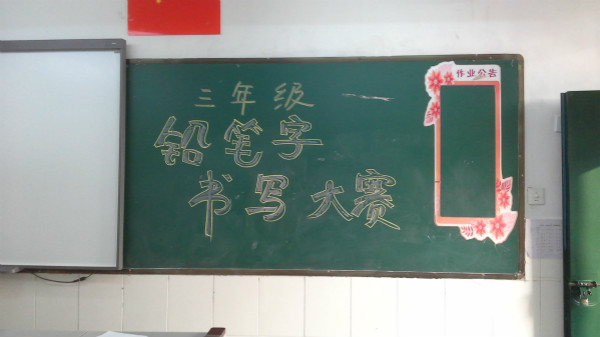 作业公告
三年级
铅笔字
书写大赛